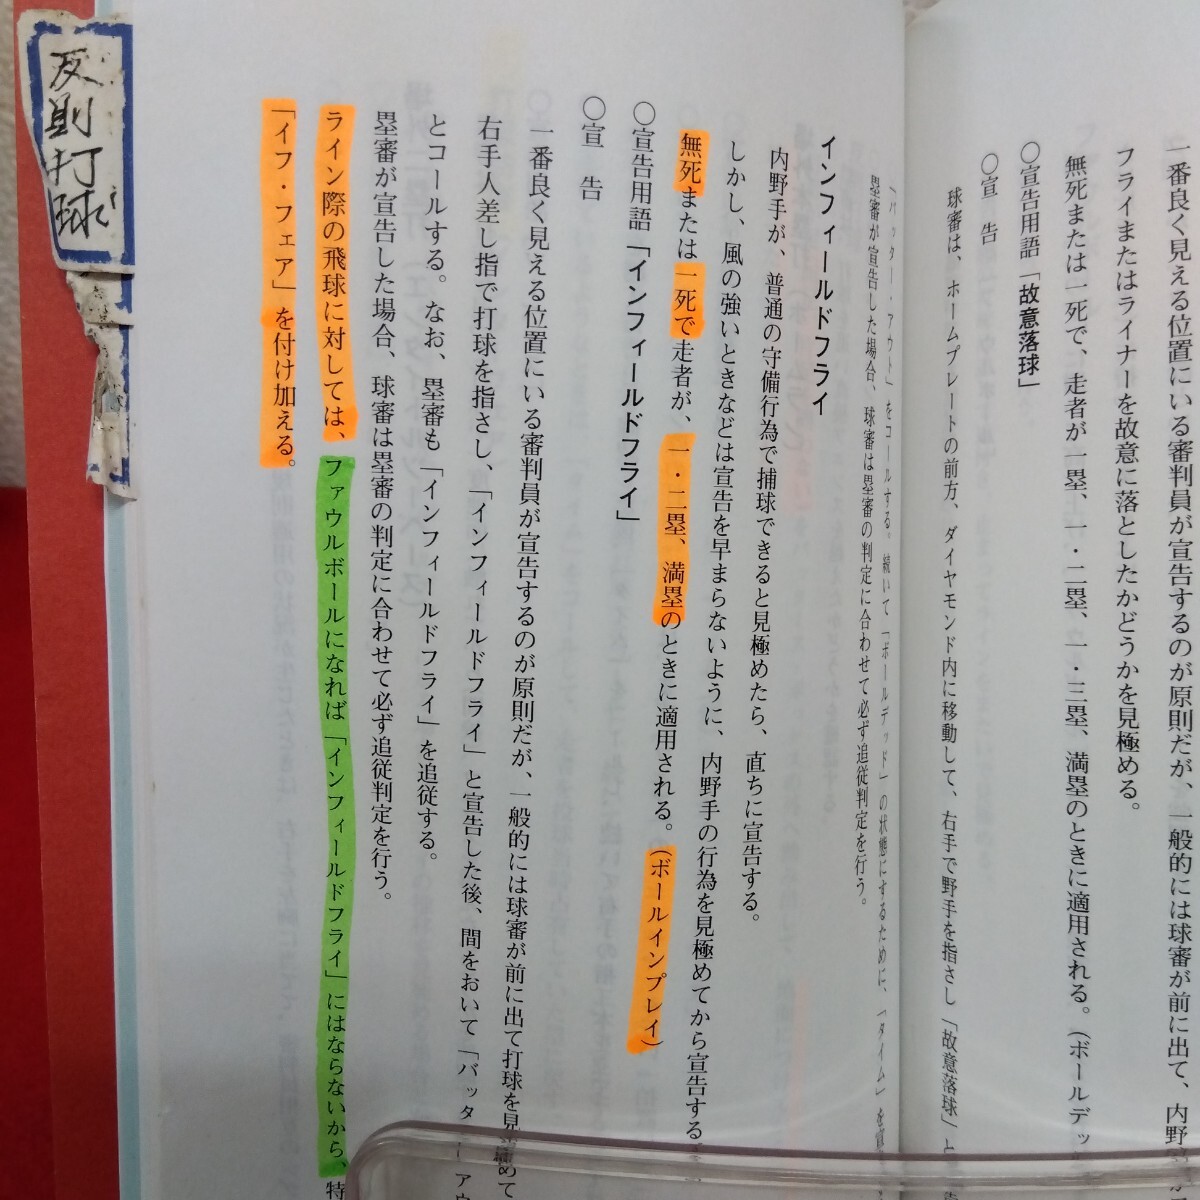 一番良く見える位置にいる審判員が宣告するのが原則だが、一般的には球審が前に出て、内野
フライまたはライナーを故意に落としたかどうかを見極める。
無死または一死で、走者が一塁、一・二塁、一・三塁、満塁のときに適用される。(ボールデッ
〇宣告用語「故意落球」
〇宣　告
球審は、ホームプレートの前方、ダイヤモンド内に移動して、右手で野手を指さし「故意落球」と
「バッター・アウト」をコールする。続いて「ボールデッド」の状態にするために、「タイム」を
塁審が宣告した場合、球審は塁審の判定に合わせて必ず追従判定を行う。
インフィールドフライ
内野手が、普通の守備行為で捕球できると見極めたら、直ちに宣告する。
しかし、風の強いときなどは宣告を早まらないように、内野手の行為を見極めてから宣告する
無死または一死で走者が、一・二塁、満塁のときに適用される。(ボールインプレイ)
〇宣告用語「インフィールドフライ」
〇宣　告
一番良く見える位置にいる審判員が宣告するのが原則だが、一般的には球審が前に出て打球を見極めて
右手人差し指で打球を指さし、「インフィールドフライ」と宣告した後、間をおいて「バッターアウ
とコールする。なお、塁審も「インフィールドフライ」を追従する。
塁審が宣告した場合、球審は塁審の判定に合わせて必ず追従判定を行う。
ライン際の飛球に対しては、ファウルボールになれば「インフィールドフライ」にはならないから、特
「イフ・フェア」を付け加える。
反則打球